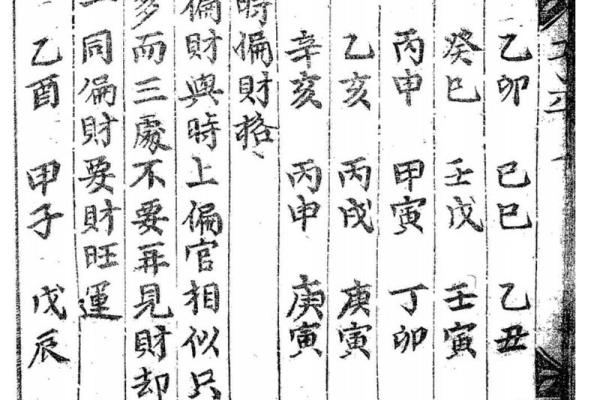 乙卯 己巳 乙丑
癸巳 壬戌 壬寅
丙申 甲寅 丁卯
乙亥 丙戌 庚寅
辛亥 丙申 庚寅
時偏財格
偏財與時上偏官相似只
多而三處不要再見財却
同偏財要財旺運
乙酉 甲子 戊辰